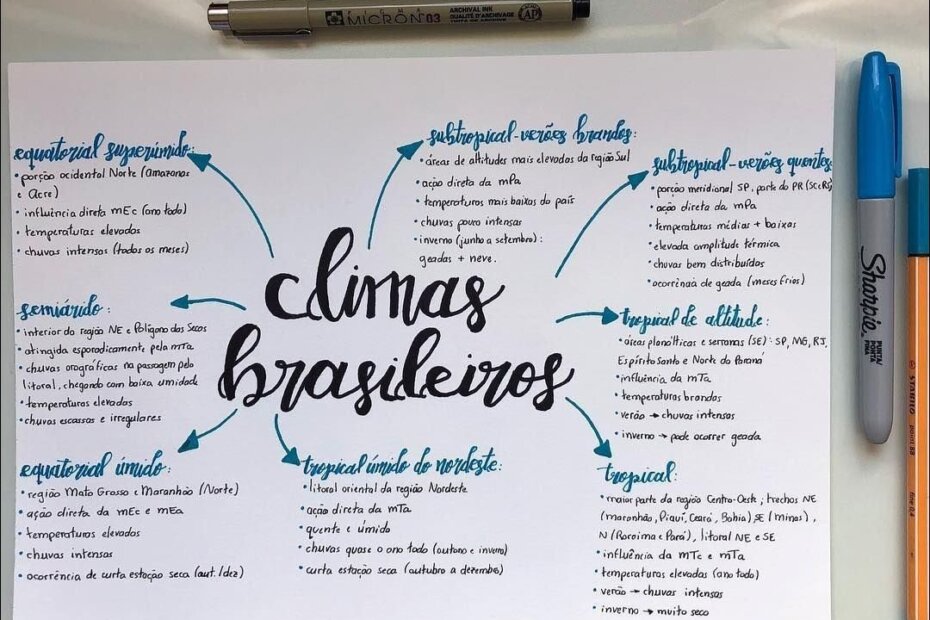 SIGMA
MICRON 03
ARCHIVAL INK
QUALITÉ D'ARCHIVAGE
AP
equatorial superúmido:
• porção ocidental Norte (Amazonas
e Acre)
• influência direta mEc (ano todo)
• temperaturas elevadas
• chuvas intensas (todos os meses)
subtropical-verões brandos:
• áreas de altitudes mais elevadas da região Sul
• ação direta da mPa
• temperaturas mais baixas do país
• chuvas pouco intensas
• inverno (junho a setembro):
geadas + neve.
subtropical-verões quentes:
• porção meridional SP, parte do PR (SC e RS)
• ação direta da mPa
• temperaturas médias + baixas
• elevada amplitude térmica
• chuvas bem distribuídas
• ocorrência de geada (meses frios)
climas
brasileiros
semiárido:
• interior da região NE e Polígono das Secas
• atingida esporadicamente pela mTa
• chuvas orográficas na passagem pelo
litoral, chegando com baixa umidade
• temperaturas elevadas
• chuvas escassas e irregulares
tropical de altitude:
• áreas planálticas e serranas (SE): SP, MG, RJ,
Espírito Santo e Norte do Paraná
• influência da mTa
• temperaturas brandas
• verão → chuvas intensas
• inverno → pode ocorrer geada
equatorial úmido:
• região Mato Grosso e Maranhão (Norte)
• ação direta da mEc e mEa
• temperaturas elevadas
• chuvas intensas
• ocorrência de curta estação seca (out./dez)
tropical úmido do nordeste:
• litoral oriental da região Nordeste
• ação direta da mTa
• quente e úmido
• chuvas quase o ano todo (outono e inverno)
• curta estação seca (outubro a dezembro)
tropical:
• maior parte da região Centro-Oeste; trechos NE
(maranhão, Piauí, Ceará, Bahia), SE (Minas),
N (Roraima e Pará), litoral NE e SE
• influência da mTc e mTa
• temperaturas elevadas (ano todo)
• verão → chuvas intensas
• inverno → muito seco
Sharpie
PUNTA/
PONTA
FINA
STABILO
point 88
fine 0,4